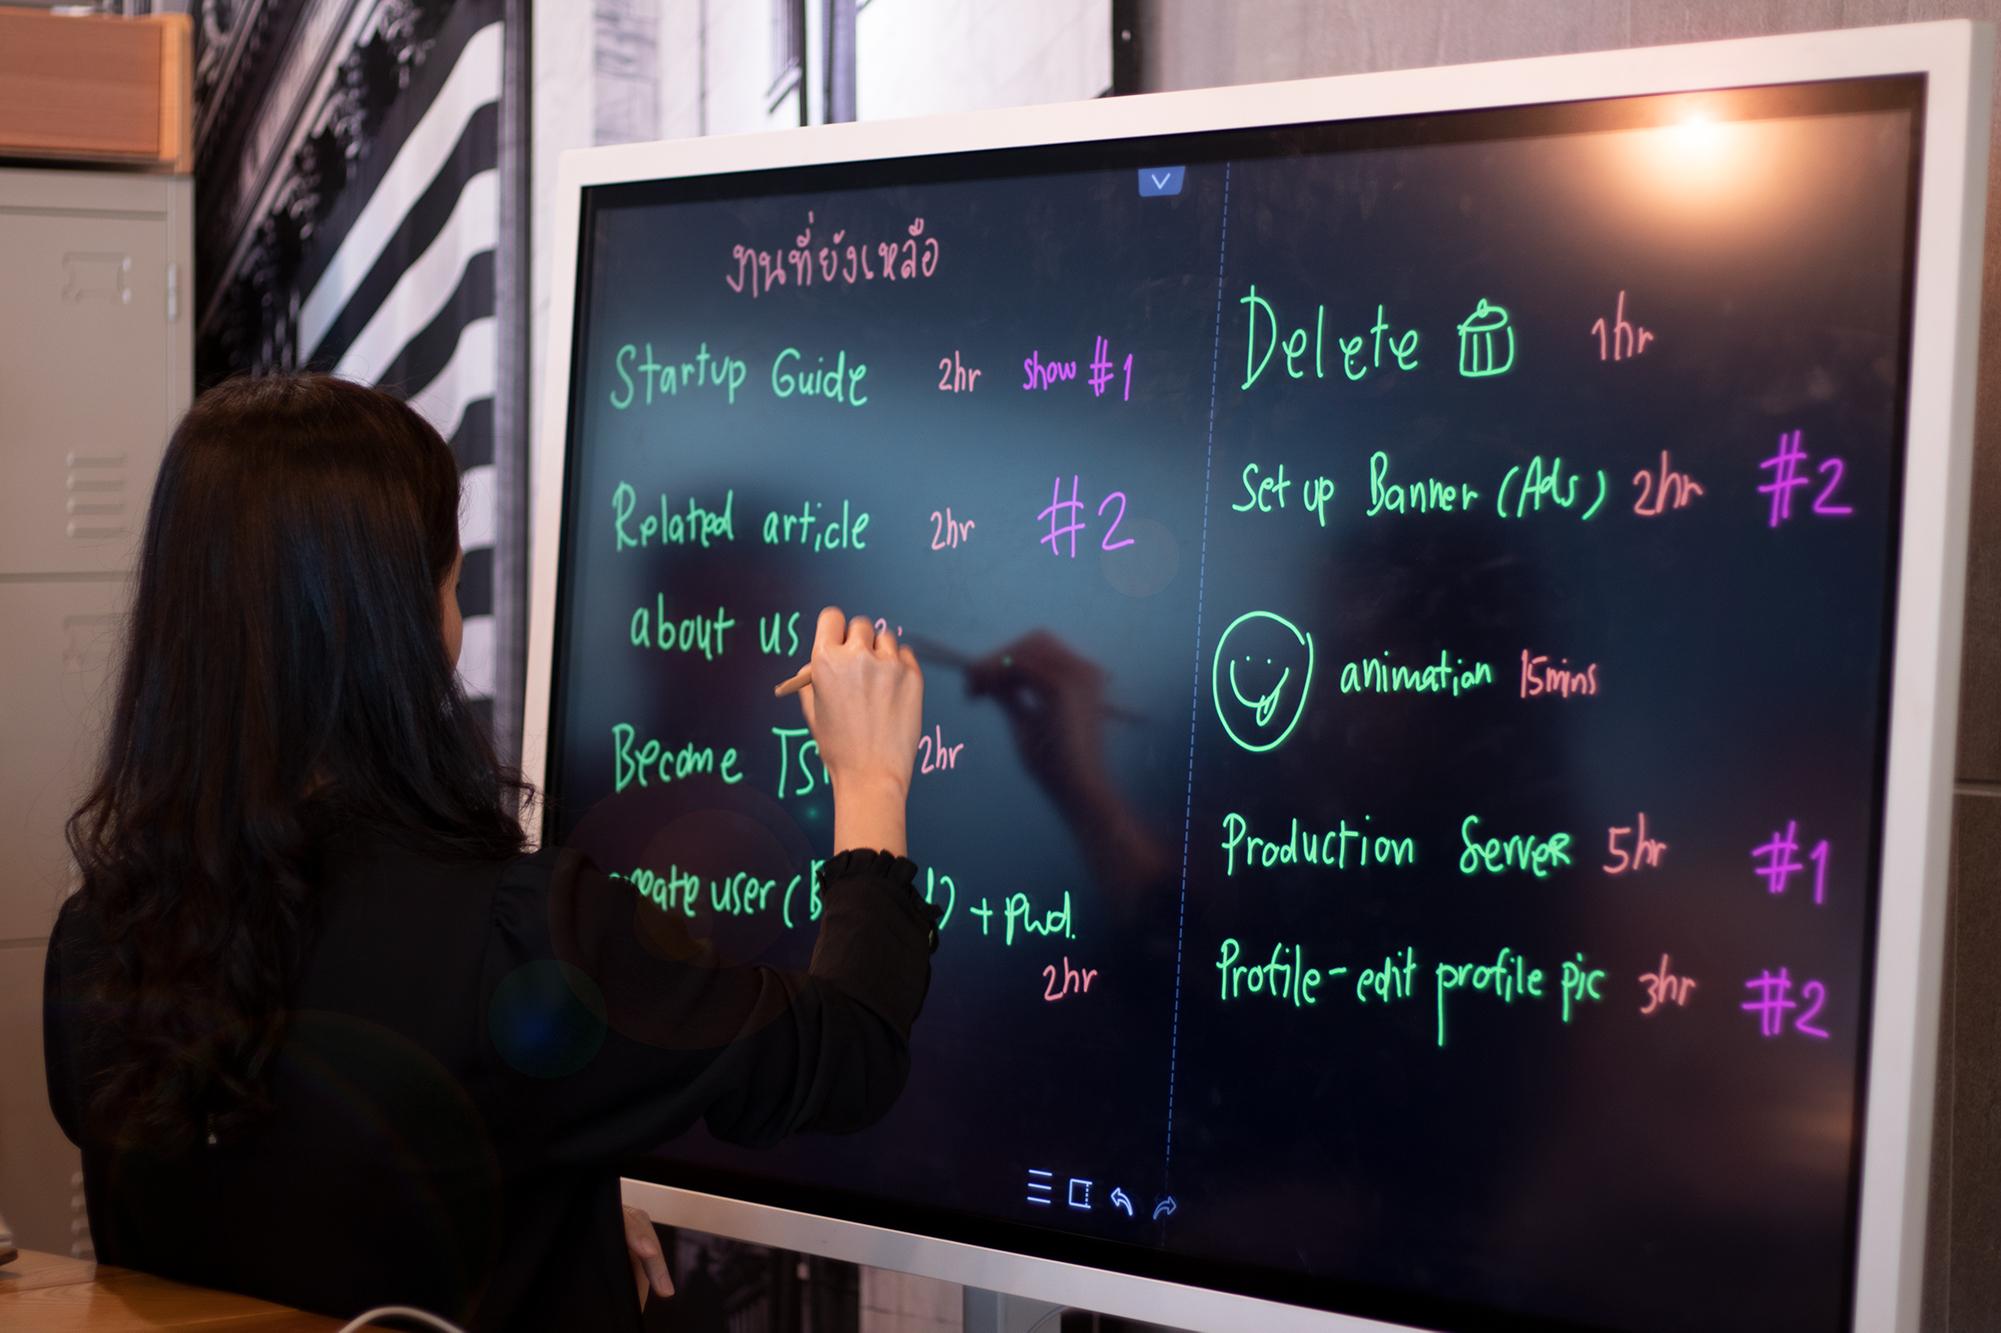 งานที่ยังเหลือ
Startup Guide 2hr show #1
Related article 2hr #2
about us
Become 2hr
user ( ) + pwd.
2hr
Delete 1hr
Set up Banner (Ads) 2hr #2
animation 15mins
Production Server 5hr #1
Profile-edit profile pic 3hr #2